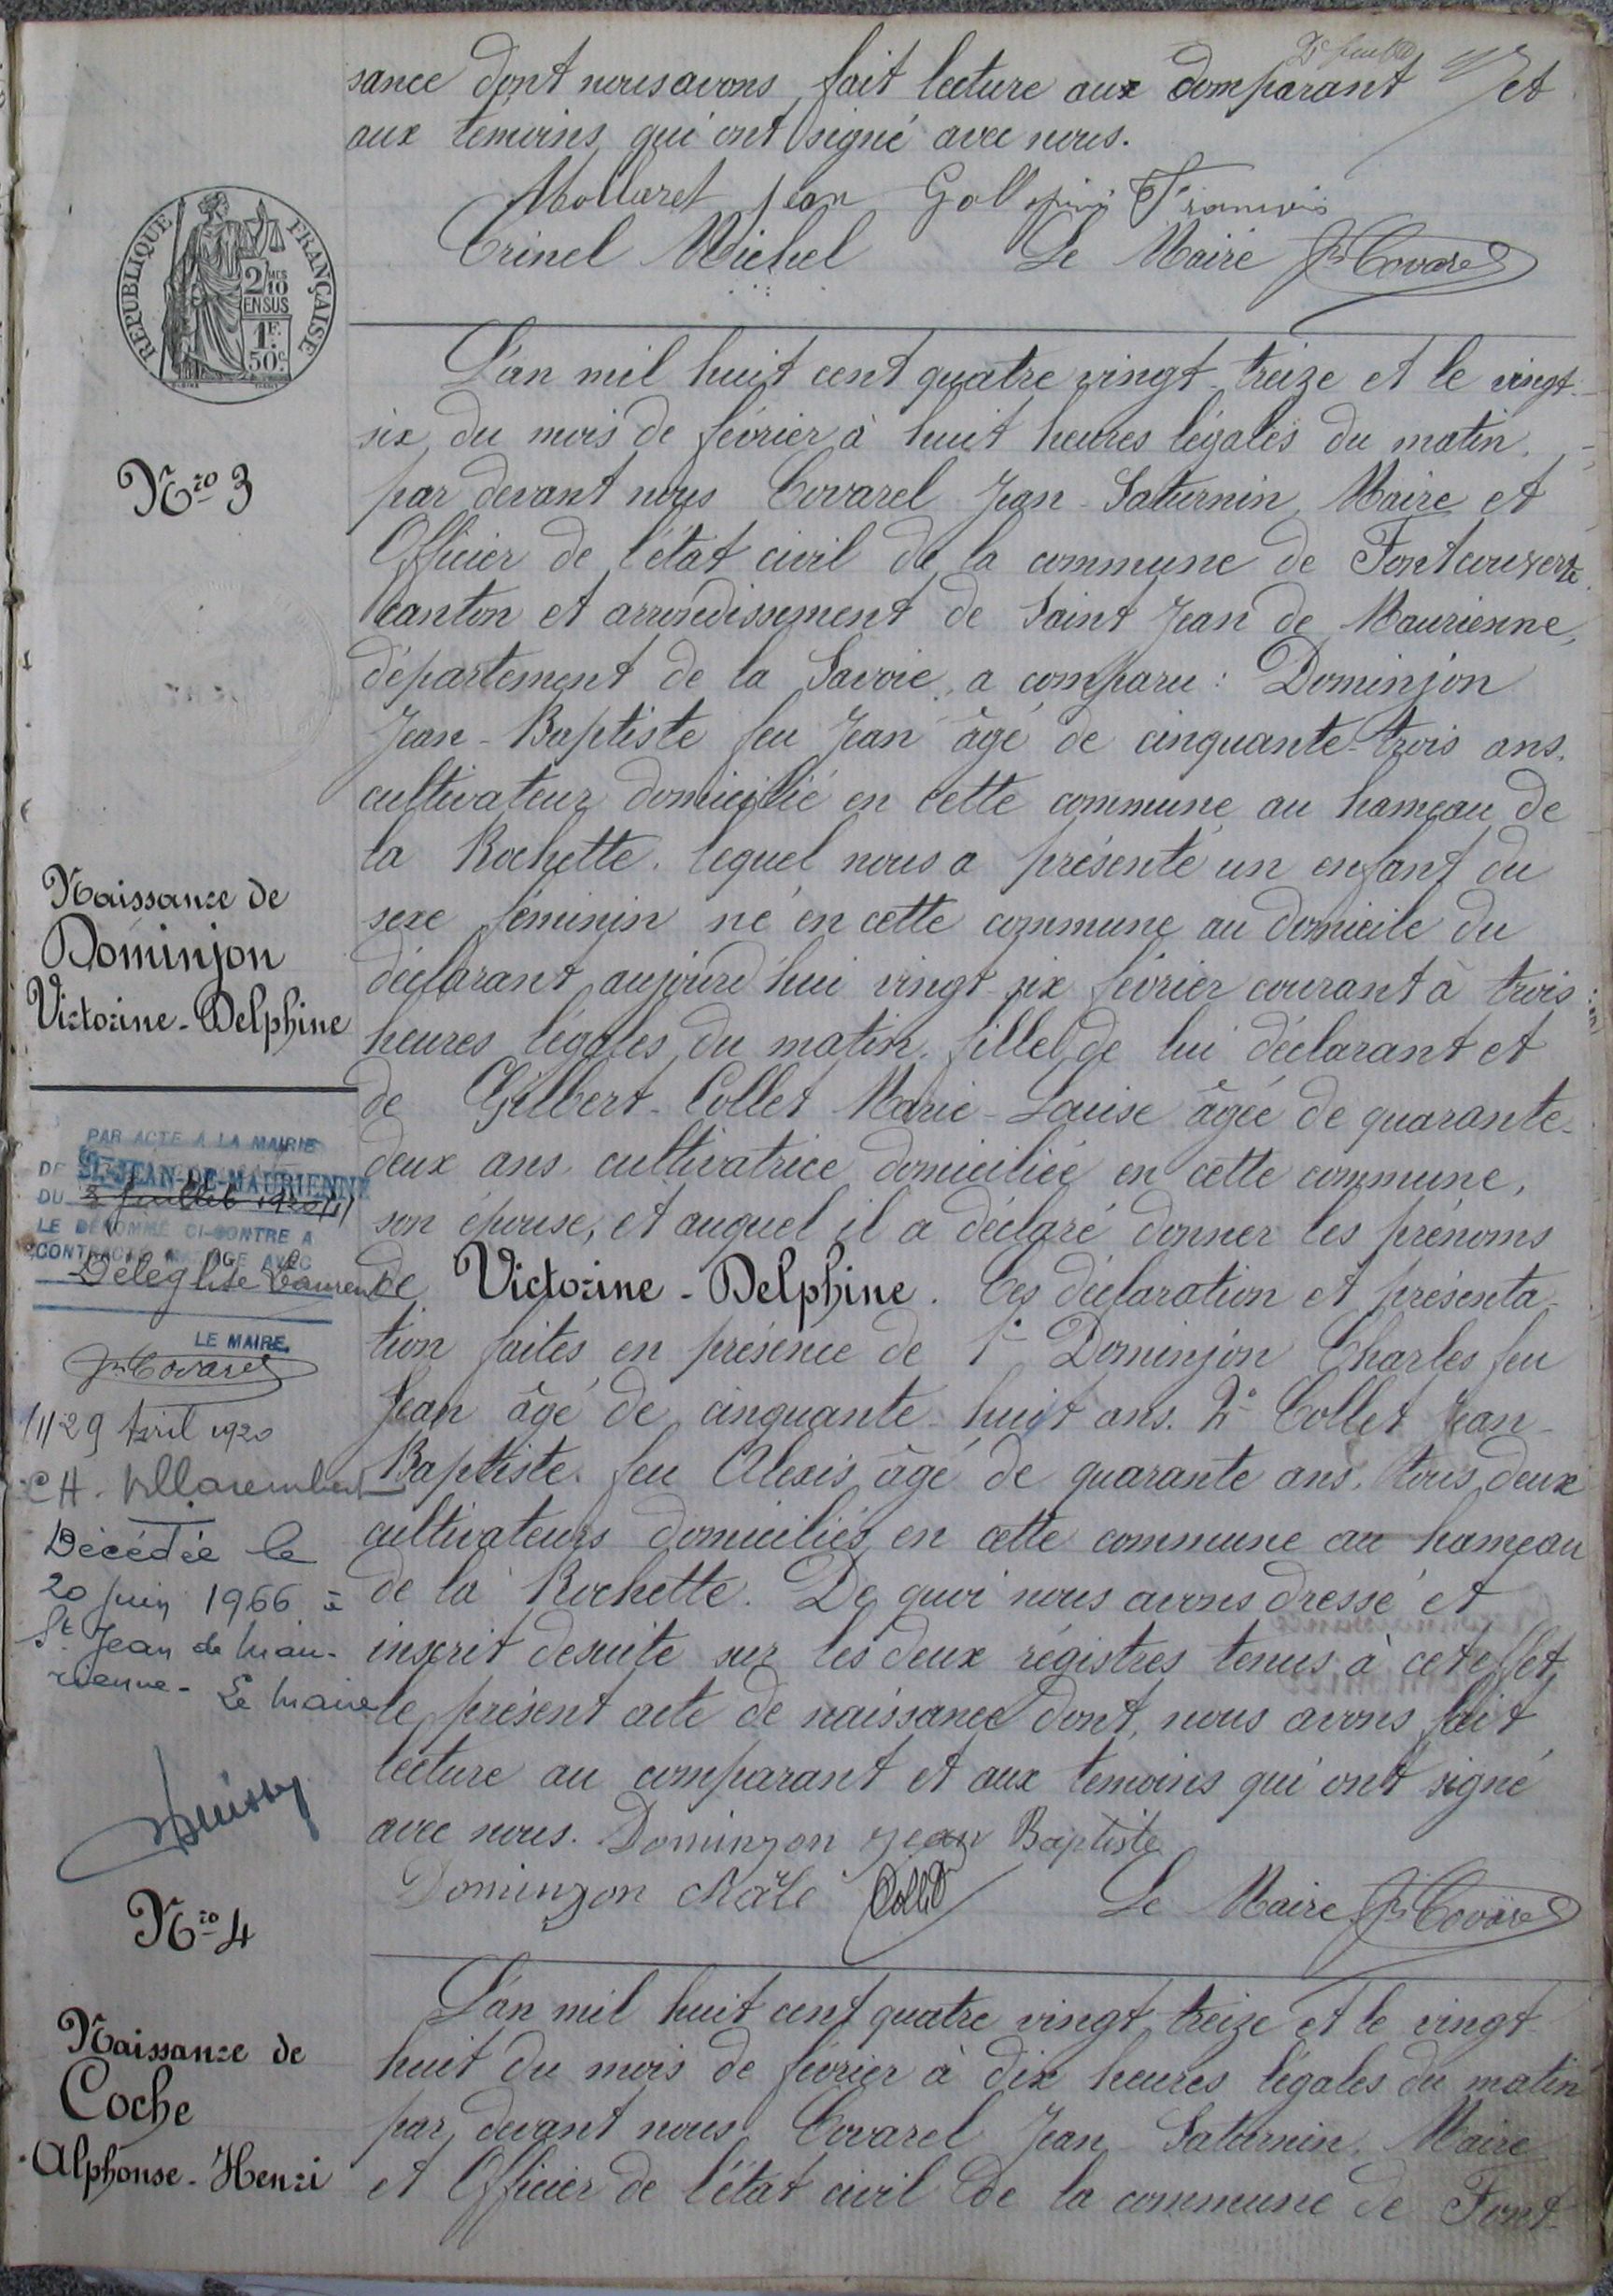 2e feuillet
sance dont nous avons fait lecture aux comparant et
aux temoins qui ont signé avec nous.
Mollaret jean Gallopin François
Crinel Michel Le Maire Jn Covarel
REPUBLIQUE FRANÇAISE
2/10 MES
EN SUS
1F.
50c.
L'an mil huit cent quatre vingt-treize et le vingt-
six du mois de février à huit heures légales du matin.
par devant nous Covarel Jean-Saturnin, Maire et
Nro 3
Officier de l'état civil de la commune de Fontcouverte
canton et arrondissement de Saint Jean de Maurienne,
département de la Savoie, a comparu : Dominjon
Jean-Baptiste feu Jean âgé de cinquante-trois ans.
cultivateur domicilié en cette commune au hameau de
la Rochette. lequel nous a présenté un enfant du
sexe féminin né en cette commune au domicile du
déclarant aujourd'hui vingt-six février courant à trois
heures légales du matin. fille de lui déclarant et
de Gilbert-Collet Marie-Louise âgée de quarante-
deux ans. cultivatrice domiciliée en cette commune,
son épouse, et auquel il a déclaré donner les prénoms
de Victorine-Delphine. Ces déclaration et présenta-
tion faites en présence de 1° Dominjon Charles feu
Jean âgé de cinquante-huit ans. 2° Collet Jean-
Baptiste. feu Alexis âgé de quarante ans. tous deux
cultivateurs domiciliés en cette commune au hameau
de la Rochette. De quoi nous avons dressé et
inscrit desuite sur les deux régistres tenus à cet effet,
le présent acte de naissance dont, nous avons fait
lecture au comparant et aux temoins qui ont signé
avec nous. Dominjon jean Baptiste
Dominjon charle Collet Le Maire Jn Covarel
Naissance de
Dominjon
Victorine-Delphine
PAR ACTE A LA MAIRIE
DE ST-JEAN-DE-MAURIENNE
DU 3 juillet 1920
LE DÉNOMMÉ CI-CONTRE A
CONTRACTÉ MARIAGE AVEC
Déléglise Laurent
LE MAIRE,
Jn Covarel
/1/ 29 Avril 1920
CH. Villarembert
Décédée le
20 juin 1966 à
St Jean de Mau-
rienne - Le Maire
Nro 4
Naissance de
Coche
Alphonse-Henri
L'an mil huit cent quatre vingt treize et le vingt-
huit du mois de février à dix heures légales du matin
par devant nous Covarel Jean Saturnin. Maire
et Officier de l'état civil de la commune de Font-